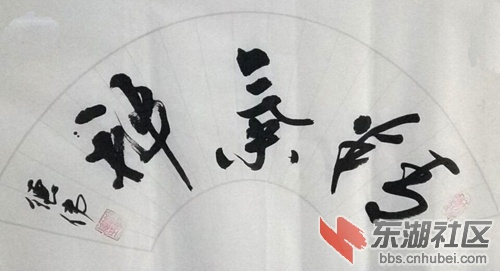 精氣神
东湖社区
bbs.cnhubei.com